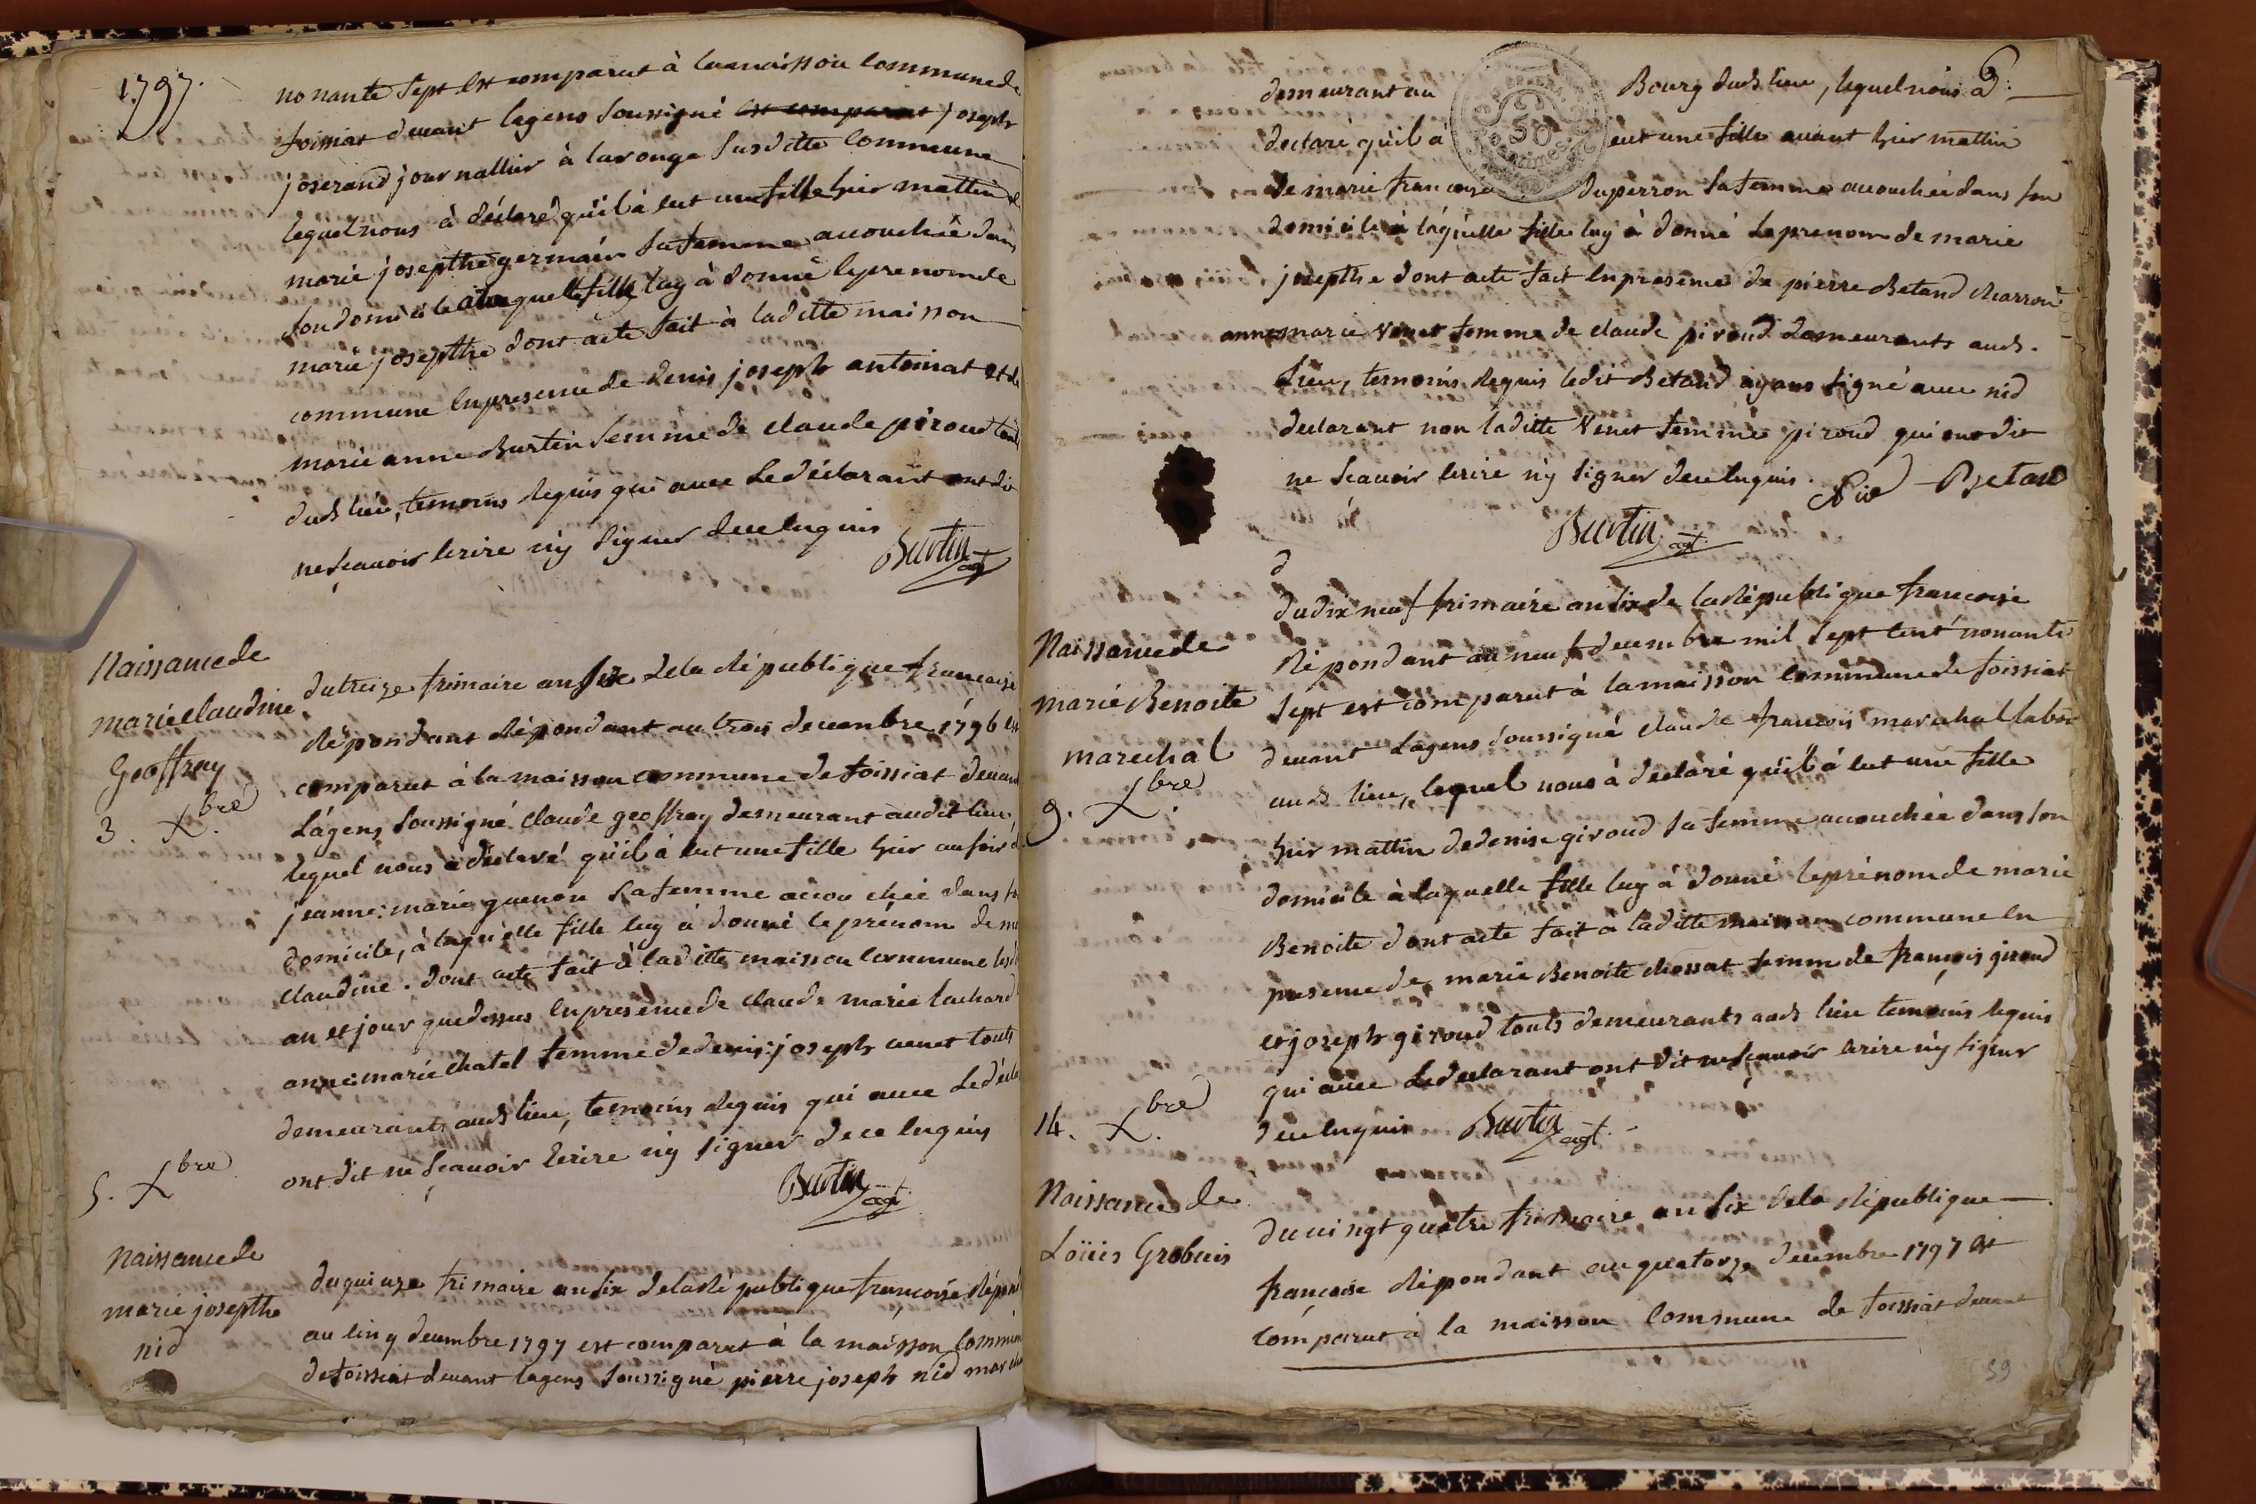 1797.
nonante Sept est comparut à lamaisson Commune de
foissiat devant lagens Soussigné est comparut joseph
joserand journallier à laronge Susditte Commune
lequel nous à déclaré qu'il à eut une fille hier mattin de
marie josepthe germain Safemme accouchée dans
Son domicile alaquelle fille luy à donné leprenom de
marie josepthe dont acte fait à laditte maisson
commune En presence de denis joseph antoinat et de
marie anne Burtin femme de claude piroud touts
duds lieu, temoins Requis qui avec Le déclarant ont dit
ne Scavoir Ecrire n'y Signer dece Enquis
Burtin agt
Naissance de
marie claudine
Geoffray
3. Xbre
dutreize frimaire an Six dela République francaise
Répondant Répondant au trois decembre 1796 est
comparut à la maisson commune de foissiat devant
Lágens Soussigné claude geoffray demeurant audit lieu,
lequel nous a déclaré qu'il à eut une fille hier au soir de
jeanne: marie guenon Safemme accouchée dans Son
domicile, à laquelle fille luy à donné le prénom de
claudine. dont acte fait à laditte maisson Commune
an et jour quedessus En presence de claude marie Luchard
anne: marie chatel femme de denis: joseph venet touts
demeurants auds lieu, temoins Requis qui avec Le
ont dit ne Scavoir Ecrire n'y Signer dece Enquis
Burtin agt
5. Xbre
Naissance de
marie josepthe
nid
duquinze frimaire an Six dela République francoise
au cinq decembre 1797 est comparut à la maisson
de foissiat devant lagens Soussigné pierre joseph nid
6.
demeurant au Bourg duds lieu, lequel nous a
50 Centimes
declaré qu'il a eut une fille avant hier mattin
de marie francoise duperron Safemme accouchée dans Son
domicile à laquelle fille luy à donné Le prenom de marie
josepthe dont acte fait En presence de pierre Betand charron
anne marie Venet femme de claude piroud demeurants auds.
Lieu, temoins Requis ledit Betand ayans Signé avec nid
declarant non laditte Venet femme piroud qui ont dit
ne Scavoir Ecrire n'y Signer dece Enquis. Nid Betand
Burtin agt
Naissance de
marie Benoite
marechal
9. Xbre
dudix neuf frimaire an Six de la République francoise
Répondant au neuf decembre mil Sept Cent nonante
Sept est comparut à lamaisson Commune de foissiat
devant Lagens Soussigné claude francois marechal
auds lieu, lequel nous à declaré qu'il à eut une fille
hier mattin de denise giroud Safemme accouchée dans Son
domicile à laquelle fille luy à donné le prénom de marie
Benoite dont acte fait a laditte maisson commune En
presence de marie Benoite chossat femme de francois giroud
et joseph giroud touts demeurants auds lieu temoins Requis
qui avec Le declarant ont dit ne Scavoir Ecrire n'y Signer
dece Enquis Burtin agt.
14. Xbre
Naissance de
Loüis Grobuis
du vingt quatre frimaire an Six dela République
francoise Répondant au quatorze decembre 1797 Est
Comparut à la maisson Commune de foissiat devant
59